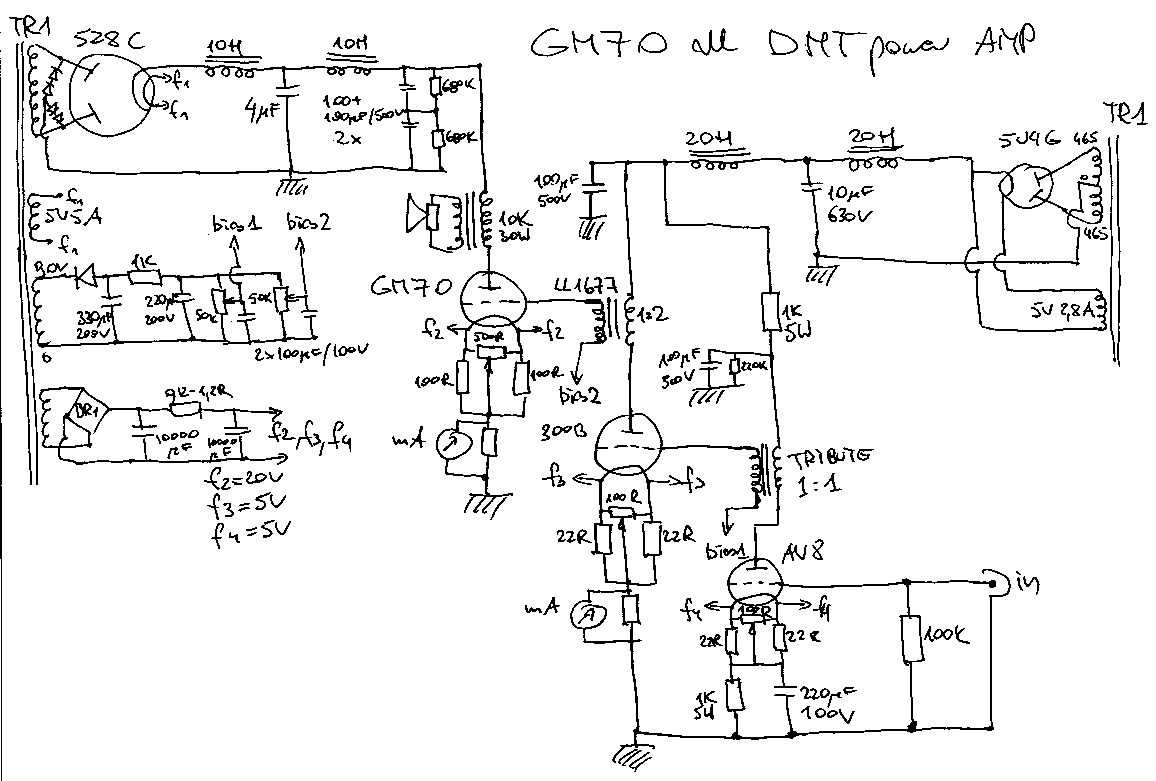 GM70 all DMT power AMP
TR1
528C
10H
10H
f1
f1
4µF
100+
100µF/500V
2x
680K
680K
f1
5V5A
f1
10K
30W
bias1
bias2
80V
1K
330µF
200V
220µF
200V
50K
50K
0
2x100µF/100V
GM70
LL1677
1:2
f2
f2
500R
100R
100R
bias2
mA
BR1
10000
µF
10000
µF
f2, f3, f4
f2=20V
f3=5V
f4=5V
TR1
20H
20H
5U4G
465
100µF
500V
10µF
630V
465
5V 2,8A
1K
5W
100µF
500V
220K
300B
TRIBUTE
1:1
f3
f3
100R
22R
22R
bias1
AV8
mA
A
f4
f4
100R
22R
22R
1K
5W
220µF
100V
100K
in